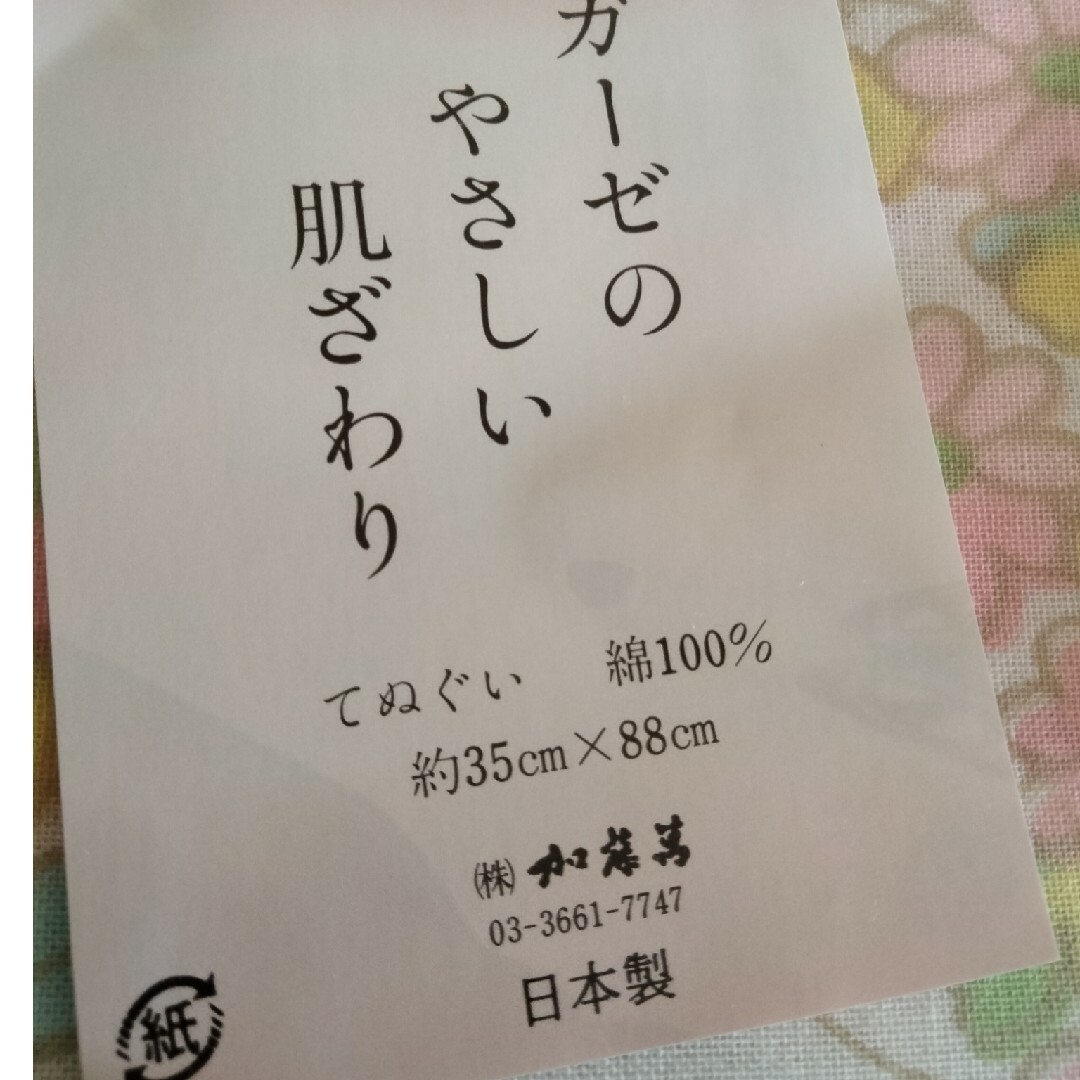 ガーゼの
やさしい
肌ざわり
てぬぐい 綿100%
約35cm×88cm
㈱加藤萬
03-3661-7747
日本製
紙